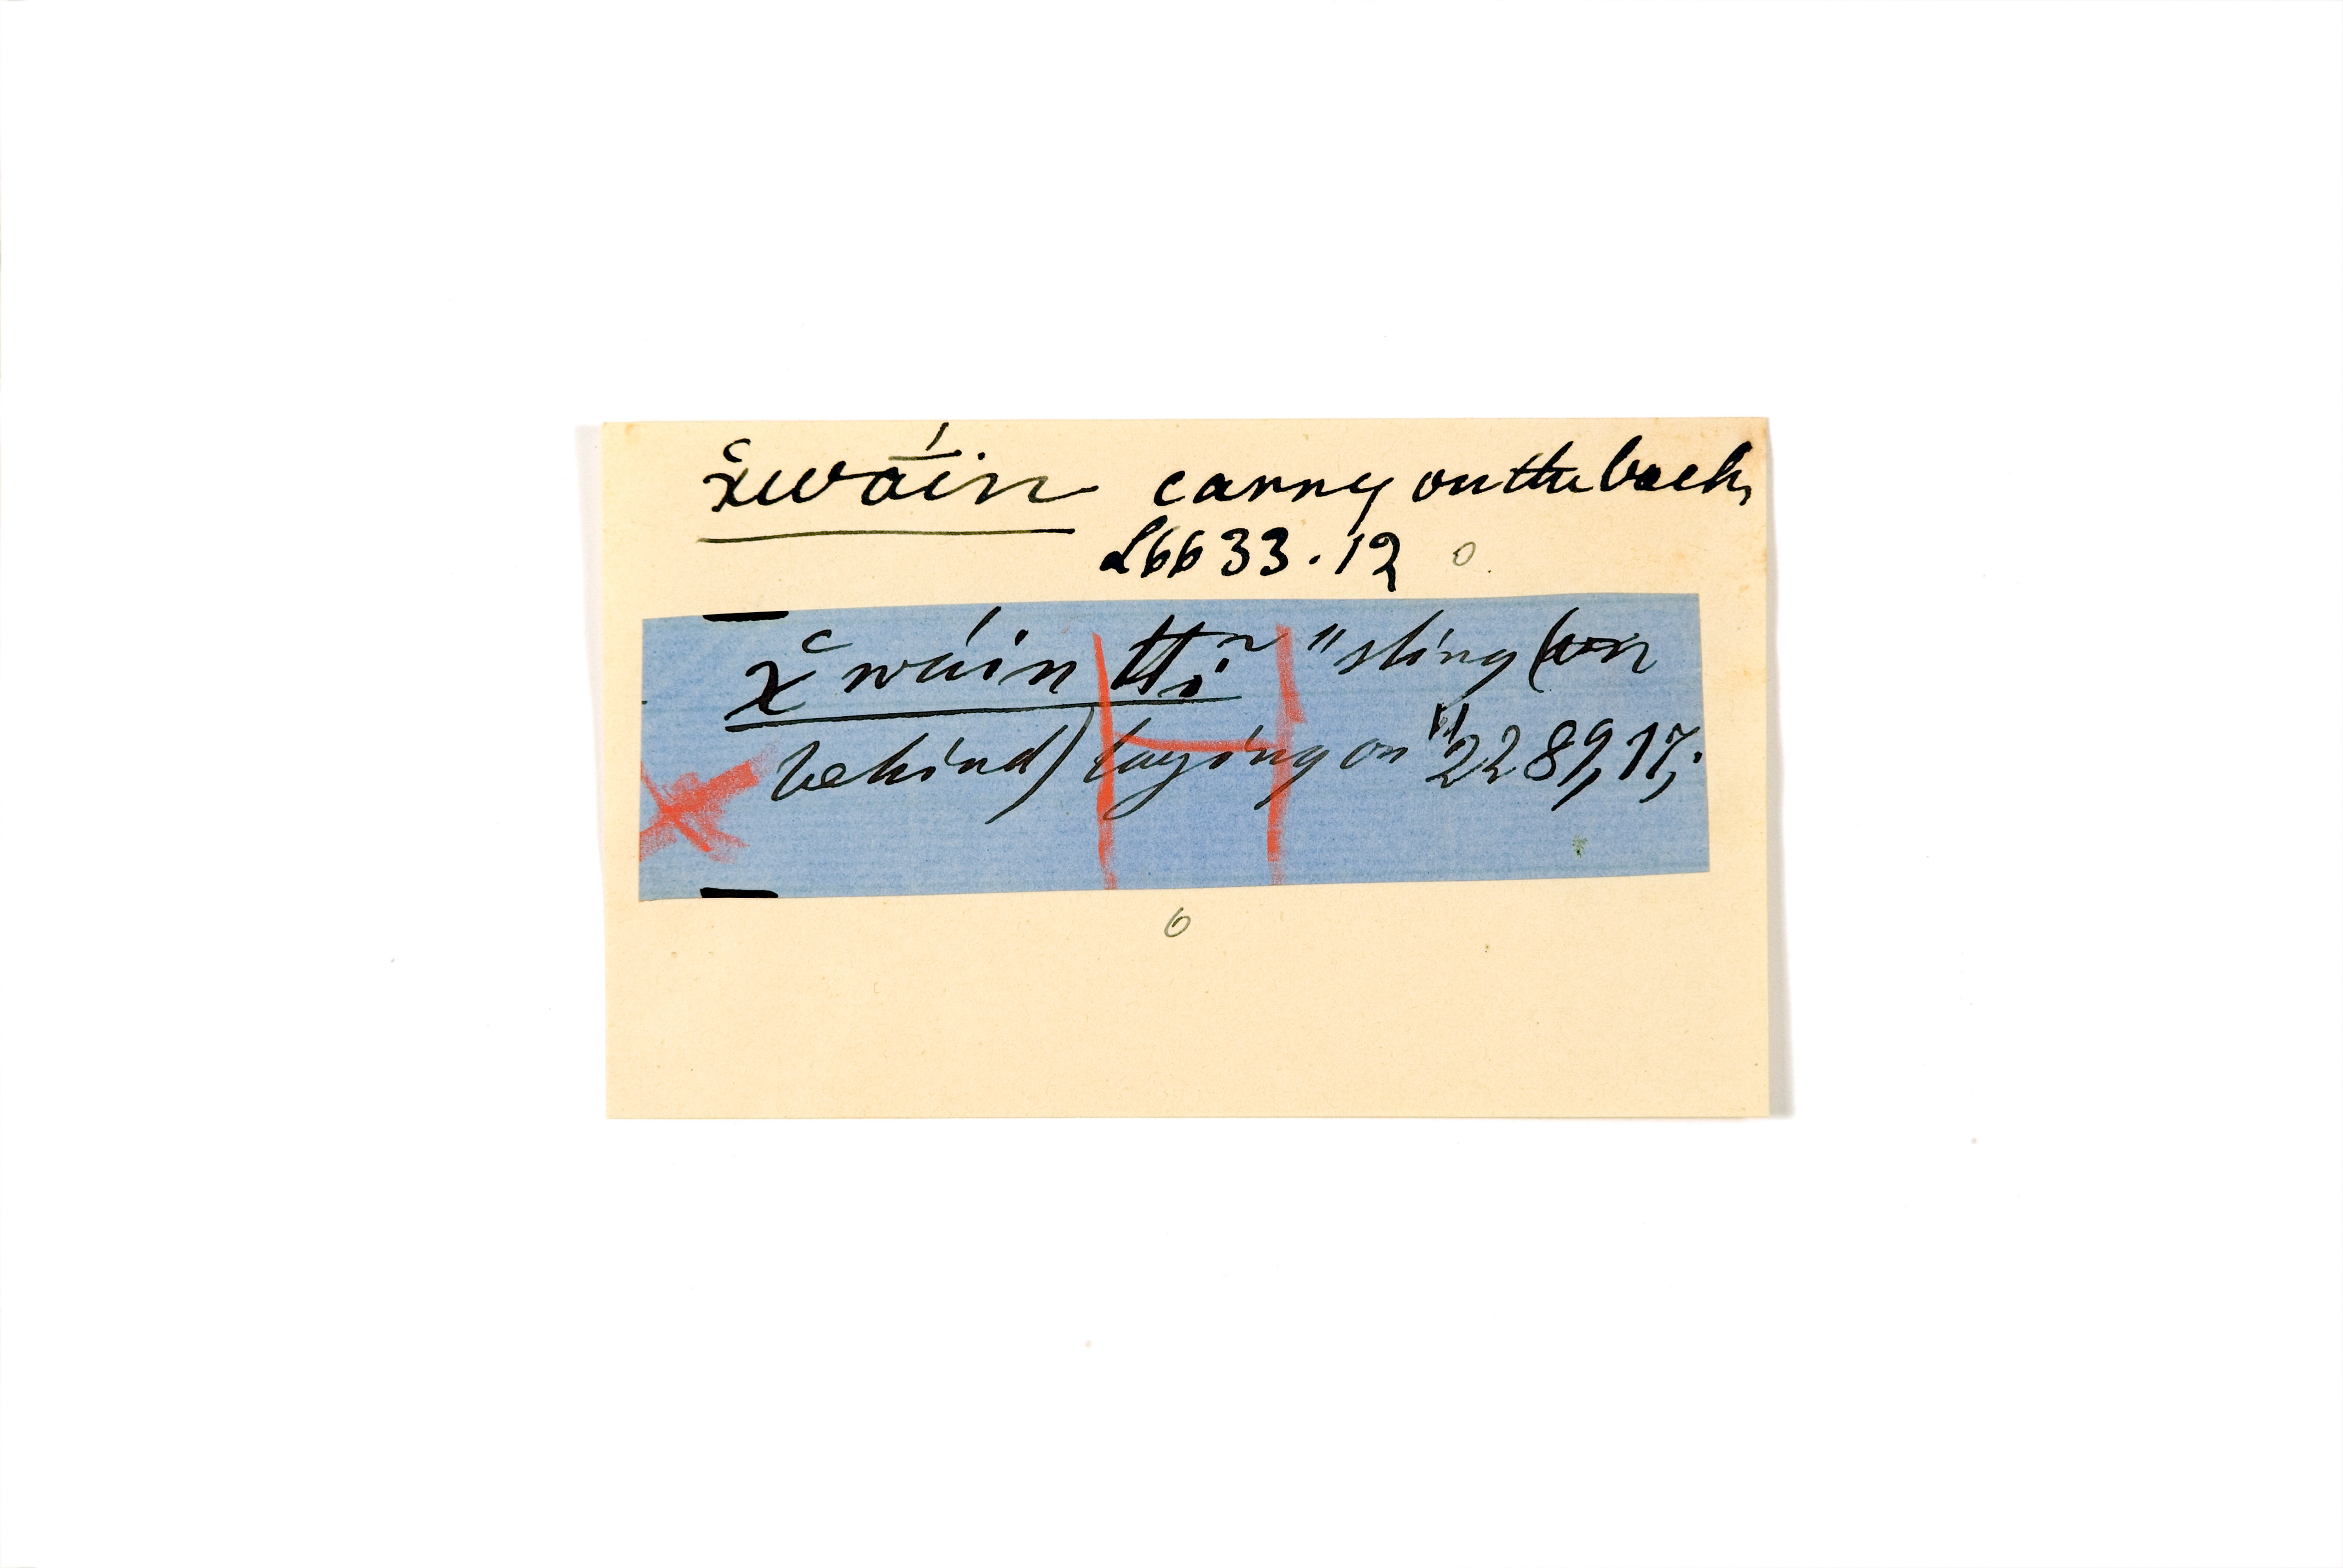 x̌wā́in carry on the back,
L6633.12 o.
x̌wáin ttĩ "sling (on
behind) laying on" 2289,17;
6